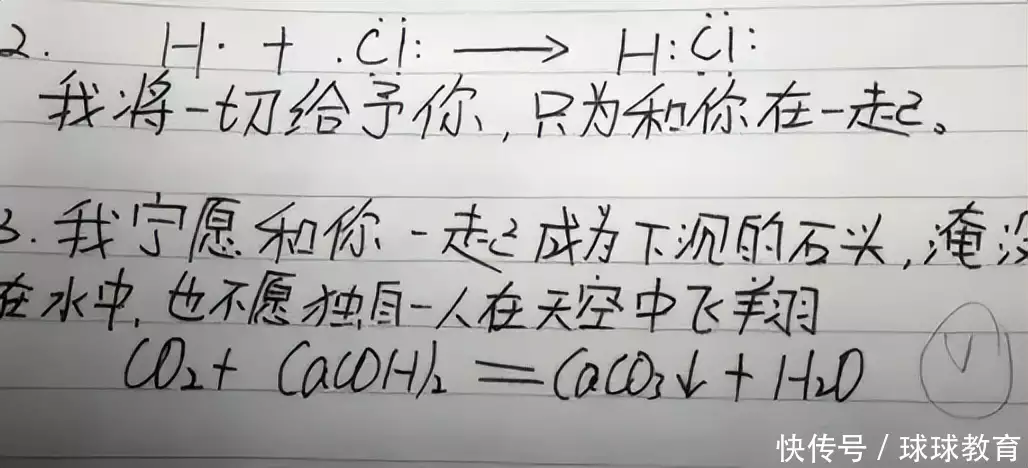 2. H· + ·C̈l: ⟶ H:C̈l:
我将一切给予你,只为和你在一起。
3. 我宁愿和你一起成为下沉的石头,淹没
在水中,也不愿独自一人在天空中飞翔
CO₂ + Ca(OH)₂ = CaCO₃↓ + H₂O
快传号 / 球球教育